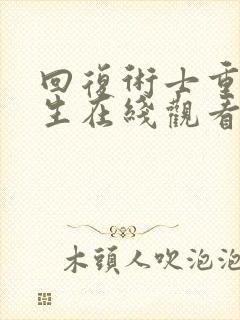 回復術士重
生在綫觀看
木頭人吹泡泡